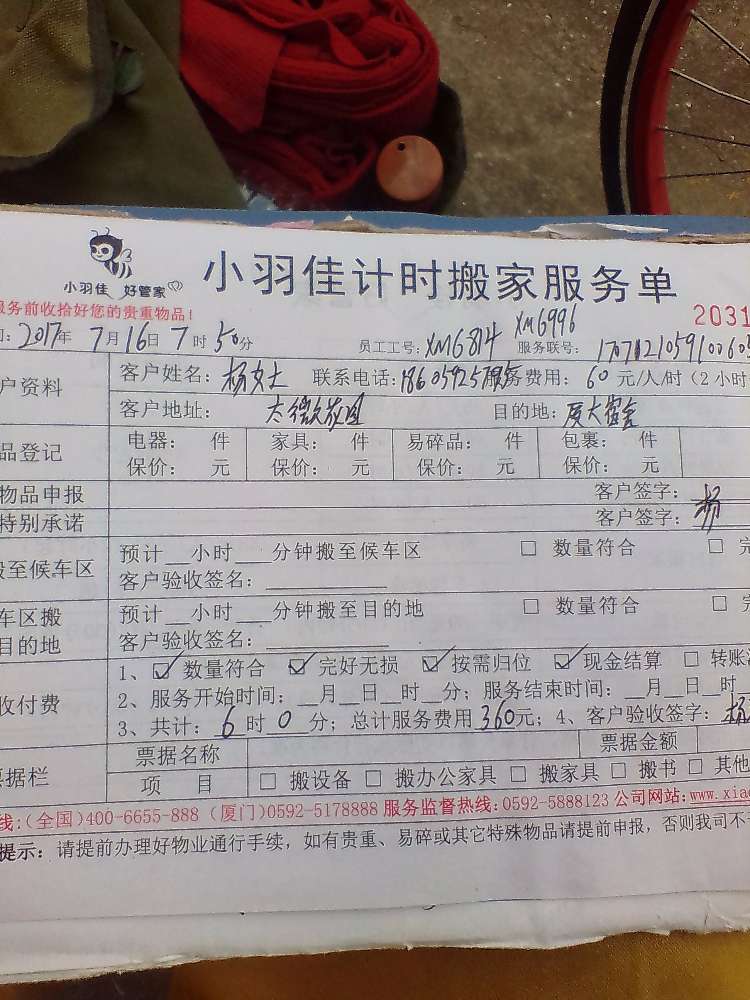 小羽佳 好管家
小羽佳计时搬家服务单
服务前收拾好您的贵重物品!
2031
2017年 7月16日 7时50分 员工工号: XM6814 XM6996 服务联号:
户资料 客户姓名: 杨女士 联系电话: 服务费用: 60元/人/时(2小时
客户地址: 太微花园 目的地: 厦大宿舍
品登记 电器: 件 家具: 件 易碎品: 件 包裹: 件
保价: 元 保价: 元 保价: 元 保价: 元
物品申报 客户签字: 杨
特别承诺 客户签字: 杨
搬至候车区 预计__小时___分钟搬至候车区 □ 数量符合 □
客户验收签名:
车区搬 预计__小时___分钟搬至目的地 □ 数量符合 □
目的地 客户验收签名:
1、☑ 数量符合 ☑ 完好无损 ☑ 按需归位 ☑ 现金结算 □ 转账
收付费 2、服务开始时间: __月__日__时__分; 服务结束时间: __月__日__时
3、共计: 6时 0分; 总计服务费用360元; 4、客户验收签字: 杨
票据栏 票据名称 票据金额
项 目 □ 搬设备 □ 搬办公家具 □ 搬家具 □ 搬书 □ 其他
线:(全国)400-6655-888 (厦门)0592-5178888 服务监督热线:0592-5888123 公司网站:www.xiao
提示: 请提前办理好物业通行手续, 如有贵重、易碎或其它特殊物品请提前申报, 否则我司不